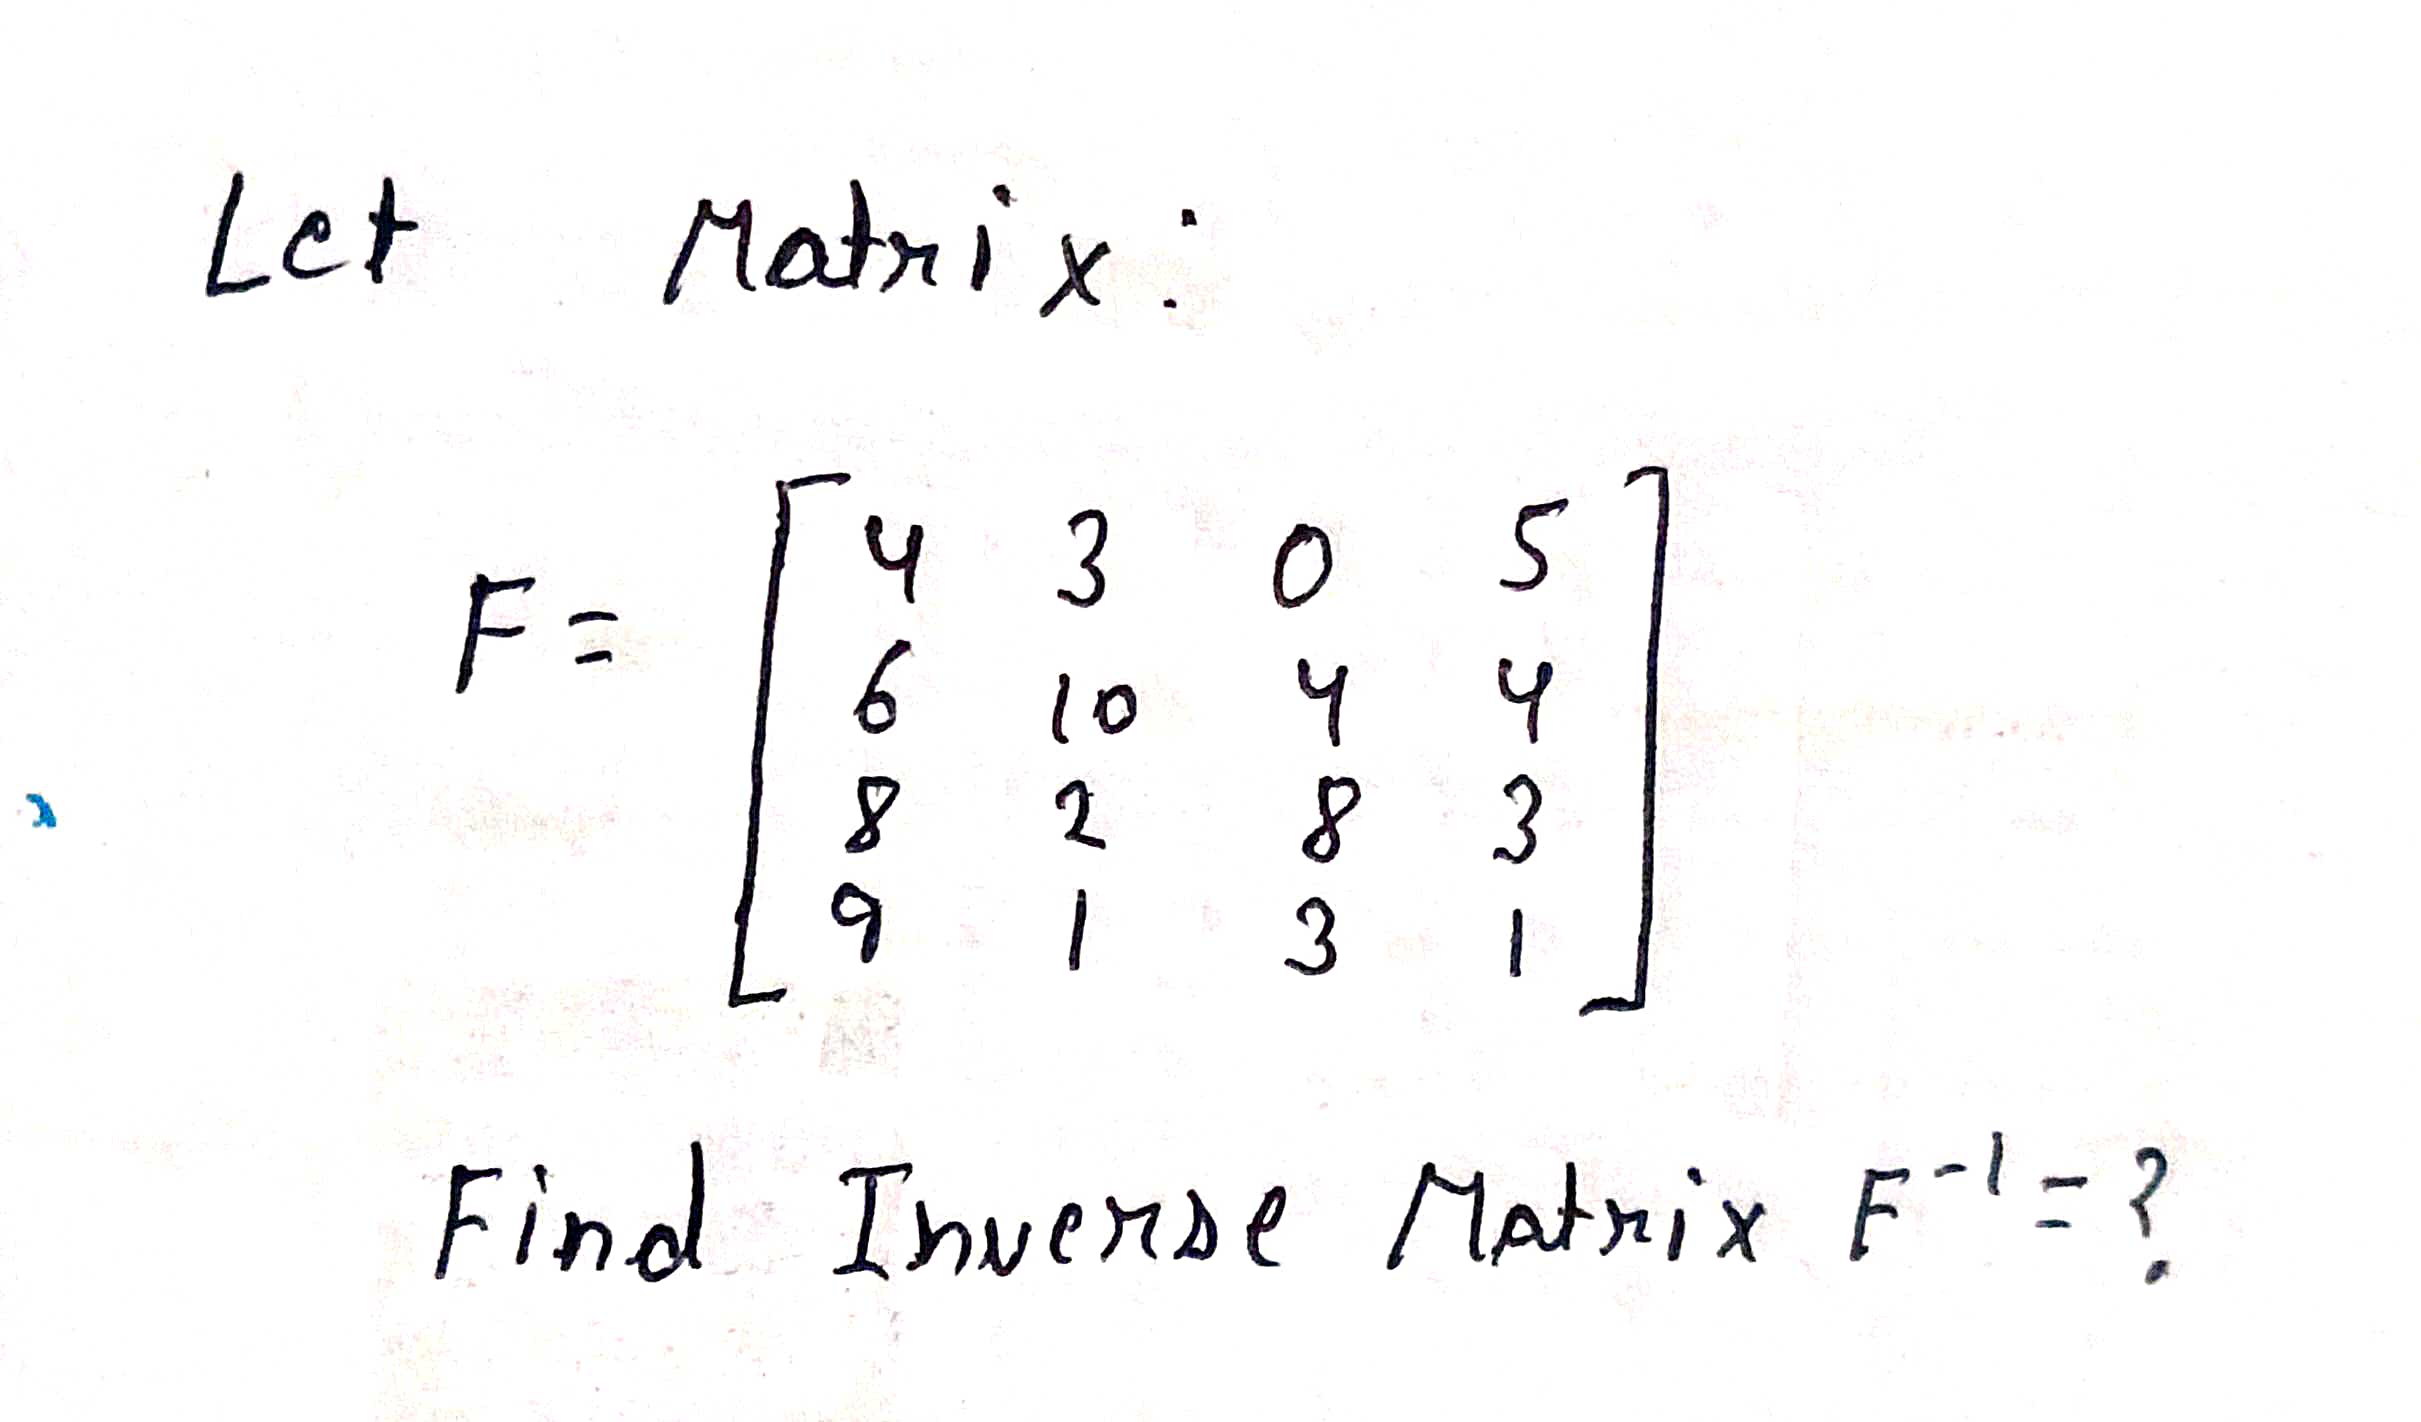 Let Matrix:
F = [ 4 3 0 5
6 10 4 4
8 2 8 3
9 1 3 1 ]
Find Inverse Matrix F⁻¹ = ?